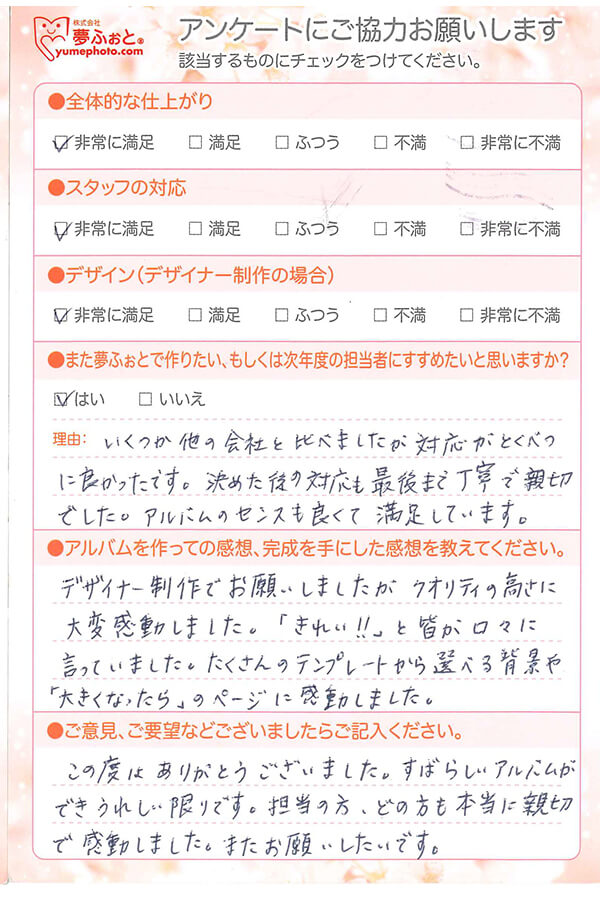 株式会社
夢ふぉと®
yumephoto.com
アンケートにご協力お願いします
該当するものにチェックをつけてください。
●全体的な仕上がり
☑非常に満足 □満足 □ふつう □不満 □非常に不満
●スタッフの対応
☑非常に満足 □満足 □ふつう □不満 □非常に不満
●デザイン(デザイナー制作の場合)
☑非常に満足 □満足 □ふつう □不満 □非常に不満
●また夢ふぉとで作りたい、もしくは次年度の担当者にすすめたいと思いますか?
☑はい □いいえ
理由: いくつか他の会社と比べましたが対応がとくべつ
に良かったです。決めた後の対応も最後まで丁寧で親切
でした。アルバムのセンスも良くて満足しています。
●アルバムを作っての感想、完成を手にした感想を教えてください。
デザイナー制作でお願いしましたがクオリティの高さに
大変感動しました。「きれい!!」と皆が口々に
言っていました。たくさんのテンプレートから選べる背景や
「大きくなったら」のページに感動しました。
●ご意見、ご要望などございましたらご記入ください。
この度はありがとうございました。すばらしいアルバムが
できうれしい限りです。担当の方、どの方も本当に親切
で感動しました。またお願いしたいです。